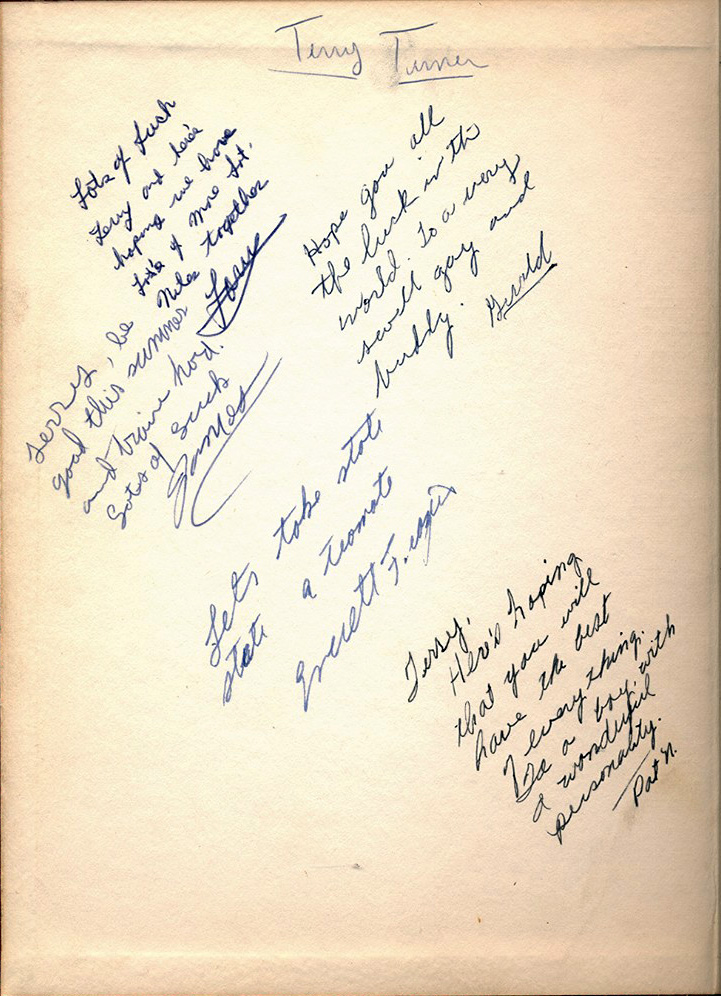 Terry Turner
Lots of Luck
Terry and here's
hoping we have
lots of more Sat.
Nites together
Hope you all
the luck in the
world. To a very
swell guy and
buddy.
Gerald
Terry, be
good this summer
and train hard.
Lots of Luck
James
Lets take state
state
a teamate
Everett
Terry,
Here's hoping
that you will
have the best
of everything.
To a boy with
a wonderful
personality.
Pat N.